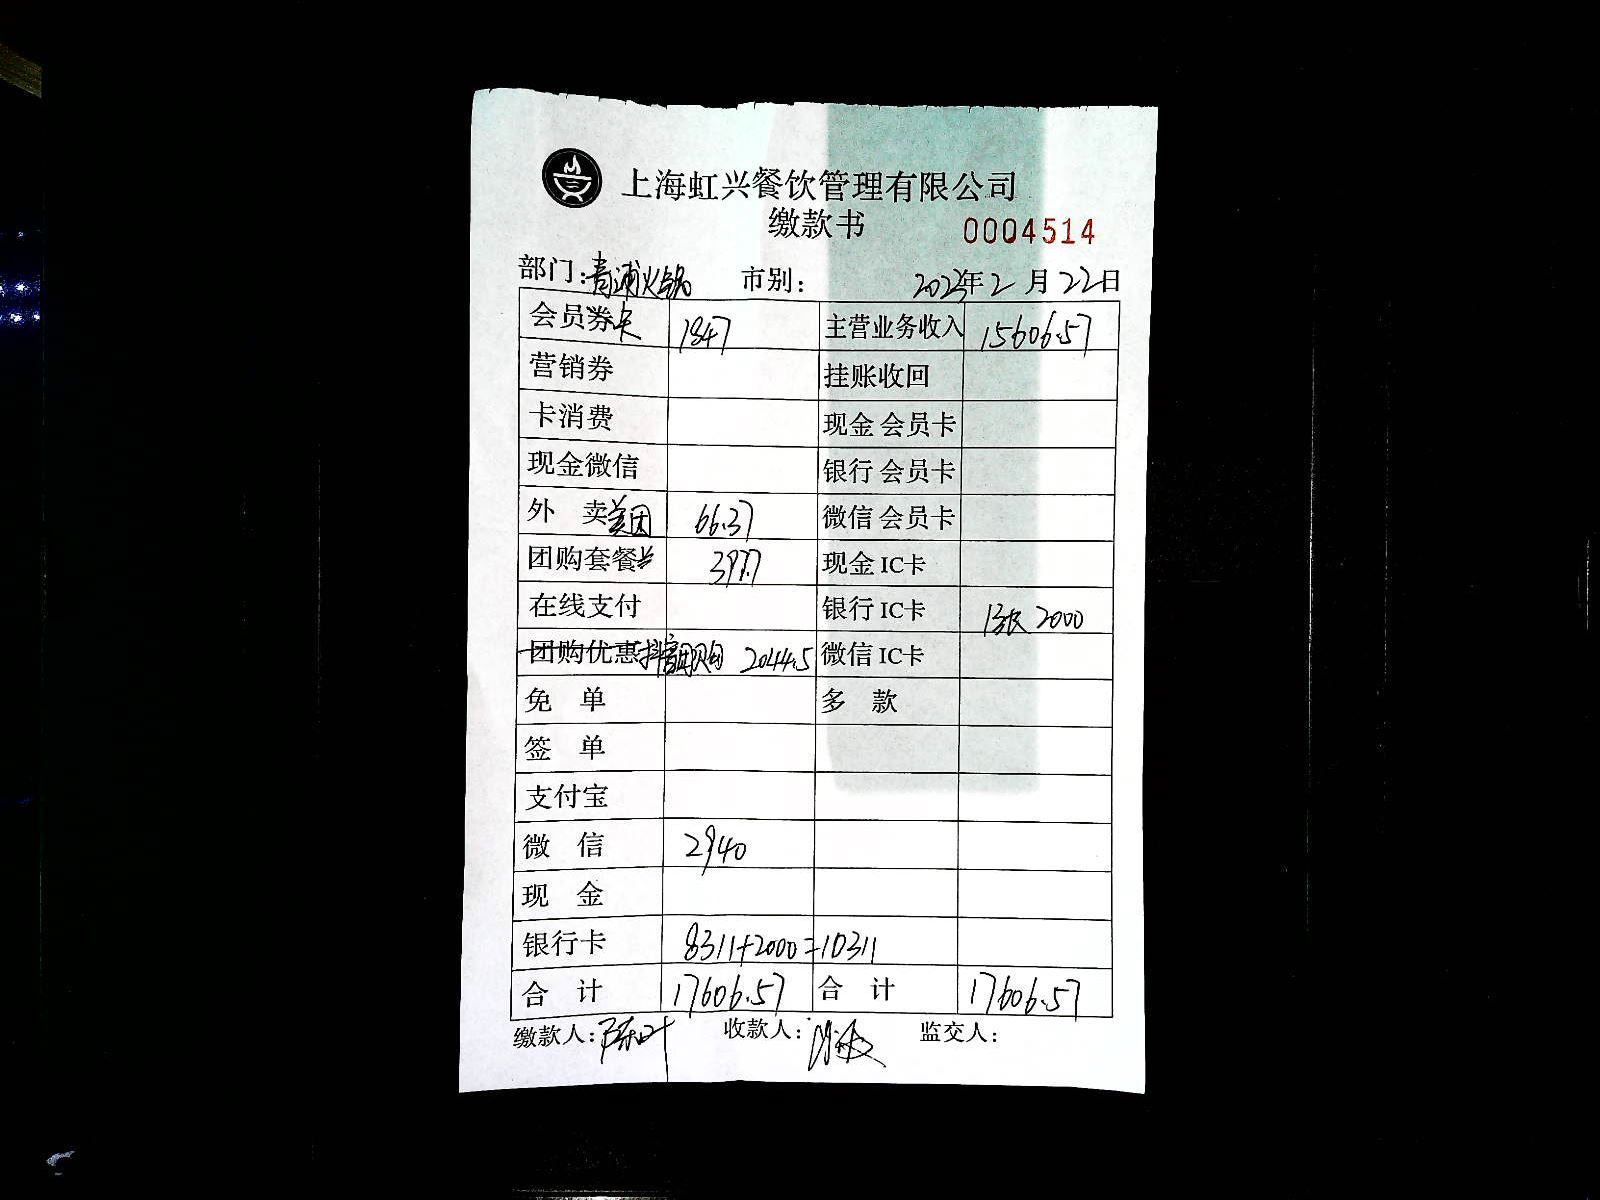 上海虹兴餐饮管理有限公司
缴款书 0004514
部门:青浦火锅 市别: 2023年2月22日
会员券卡 1847 主营业务收入 15606.57
营销券 挂账收回
卡消费 现金 会员卡
现金微信 银行 会员卡
外 卖美团 66.37 微信 会员卡
团购套餐 397.7 现金 IC卡
在线支付 银行 IC卡 2000
团购优惠抖音团购 2044.5 微信 IC卡
免 单 多 款
签 单
支付宝
微 信 2940
现 金
银行卡 8311+2000=10311
合 计 17606.57 合 计 17606.57
缴款人:陈叶 收款人: 监交人: